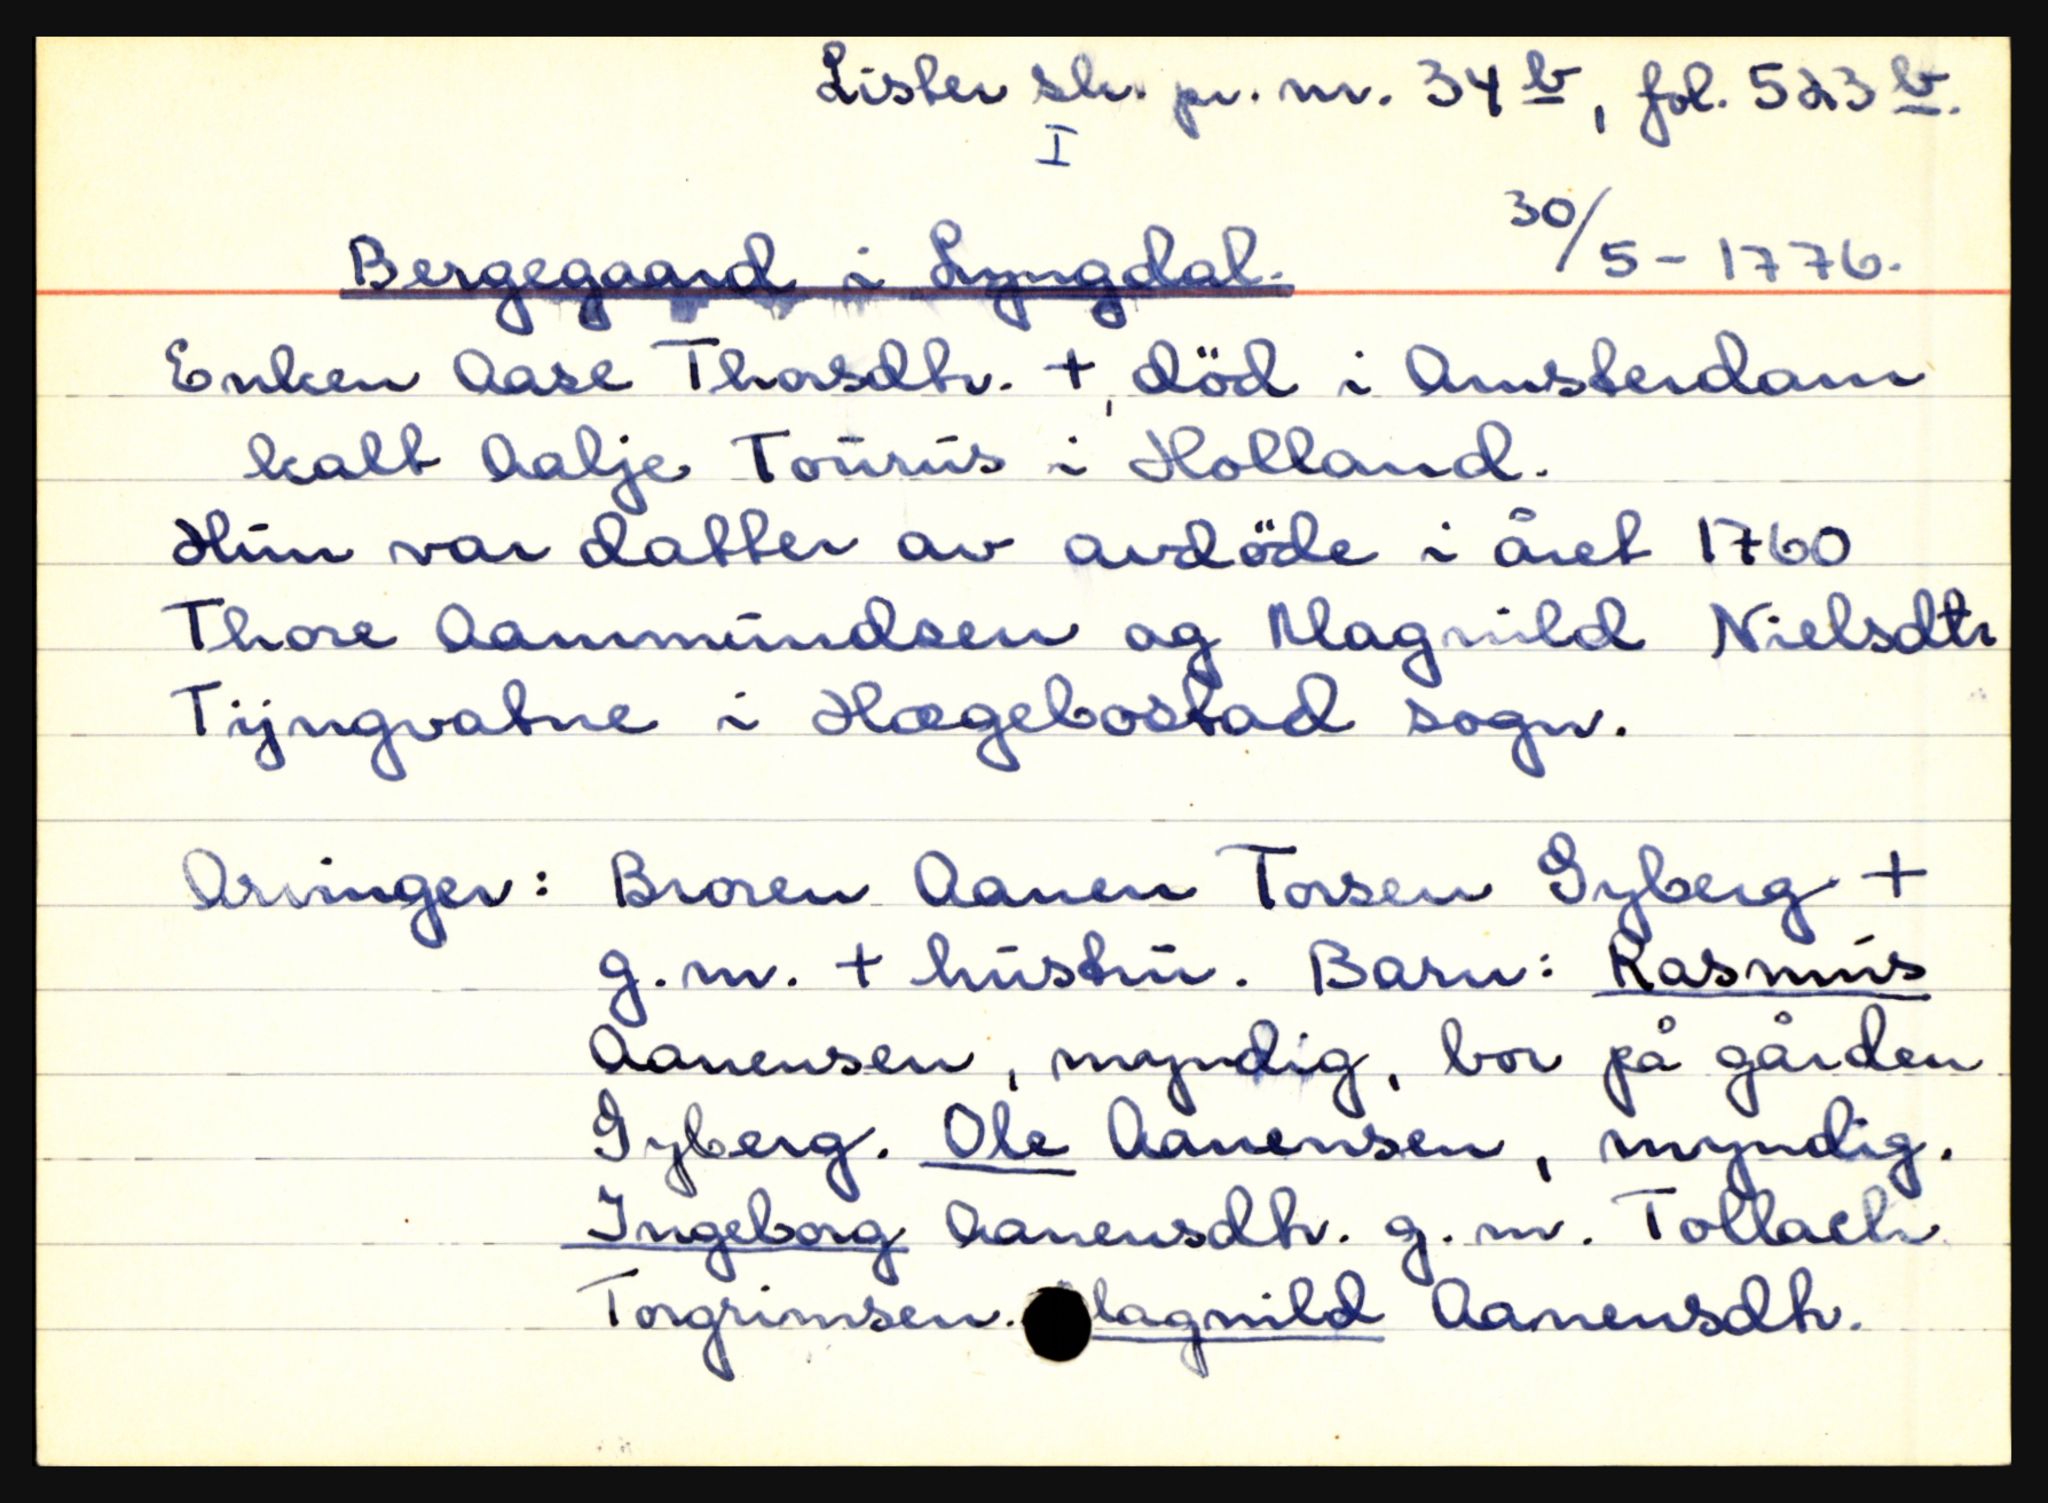 Lister skr. pr. nr. 34 b, fol. 523 b.
I
30/5 - 1776.
Bergegaard i Lyngdal.
Enken Aase Thorsdtr. +, död i Amsterdam
kalt Aalje Tourus i Holland.
Hun var datter av avdöde i året 1760
Thore Aanmundsen og Magnild Nielsdtr
Tijngvatne i Hægebostad sogn.
Arvinger: Broren Aanen Torsen Gyberg +
g.m. + hustru. Barn: Rasmus
Aanensen, myndig, bor på gården
Gyberg. Ole Aanensen, myndig.
Ingeborg Aanensdtr. g.m. Tollach
Torgrimsen. Magnild Aanensdtr.